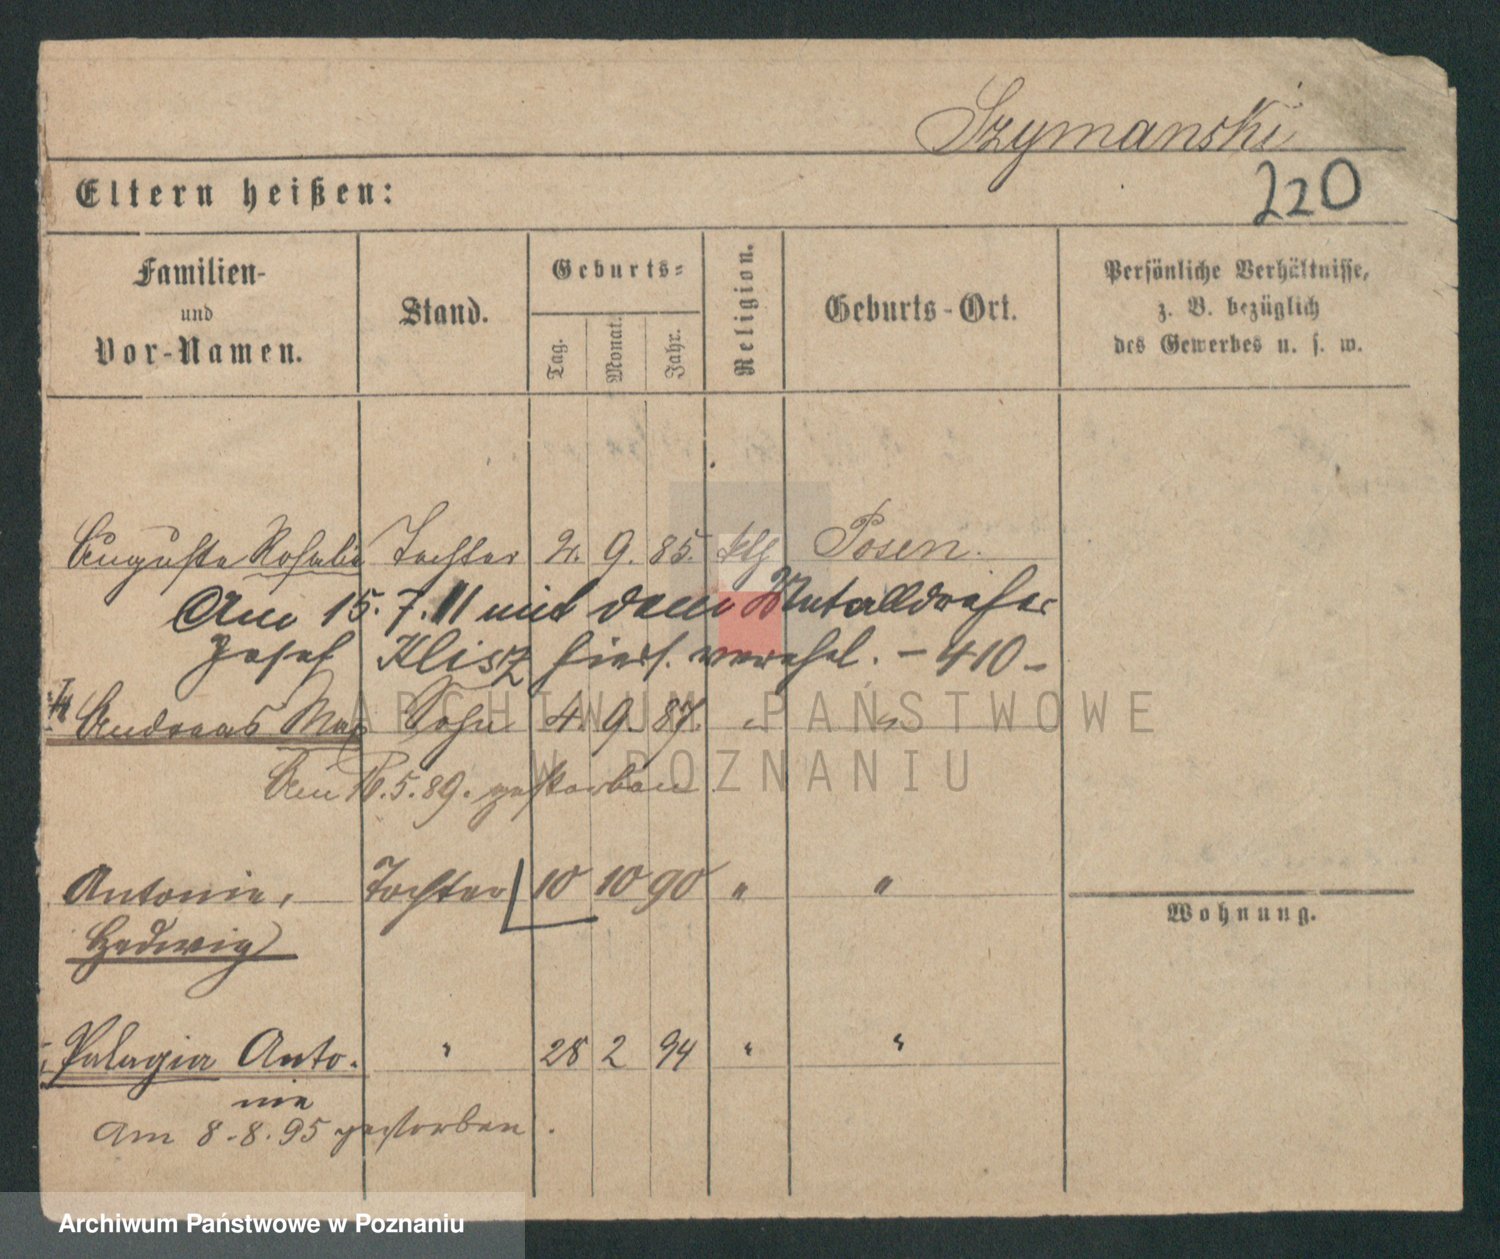 Szymanski
220
Eltern heißen:
Familien-
und
Vor-Namen.
Stand.
Geburts-
Tag.
Monat.
Jahr.
Religion.
Geburts-Ort.
Persönliche Verhältnisse,
z. B. bezüglich
des Gewerbes u. s. w.
Auguste Rosalie Tochter 2. 9. 85. kth Posen.
Am 15.7.11 mit dem Metalldreher
Josef Klisz hiers. verehel. - 410 -
Andreas Max Sohn 4. 9. 87. " "
Am 16.5.89. gestorben
Antonie, Tochter 10 10 90 " "
Hedwig
Wohnung.
Pelagia Anto- " 28 2 94 " "
nie
am 8.8.95 gestorben.
ARCHIWUM PAŃSTWOWE
W POZNANIU
Archiwum Państwowe w Poznaniu